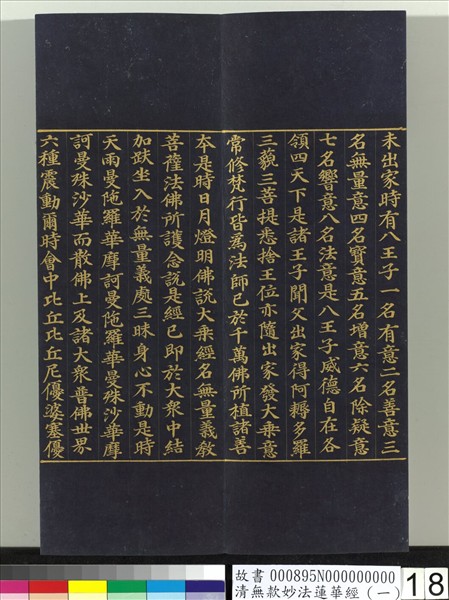 未出家時有八王子一名有意二名善意三
名無量意四名寶意五名增意六名除疑意
七名響意八名法意是八王子威德自在各
領四天下是諸王子聞父出家得阿耨多羅
三藐三菩提悉捨王位亦隨出家發大乘意
常修梵行皆為法師已於千萬佛所植諸善
本是時日月燈明佛說大乘經名無量義教
菩薩法佛所護念說是經已即於大眾中結
加趺坐入於無量義處三昧身心不動是時
天雨曼陁羅華摩訶曼陁羅華曼殊沙華摩
訶曼殊沙華而散佛上及諸大眾普佛世界
六種震動爾時會中比丘比丘尼優婆塞優
故書 000895N000000000
清無款妙法蓮華經(一)
18